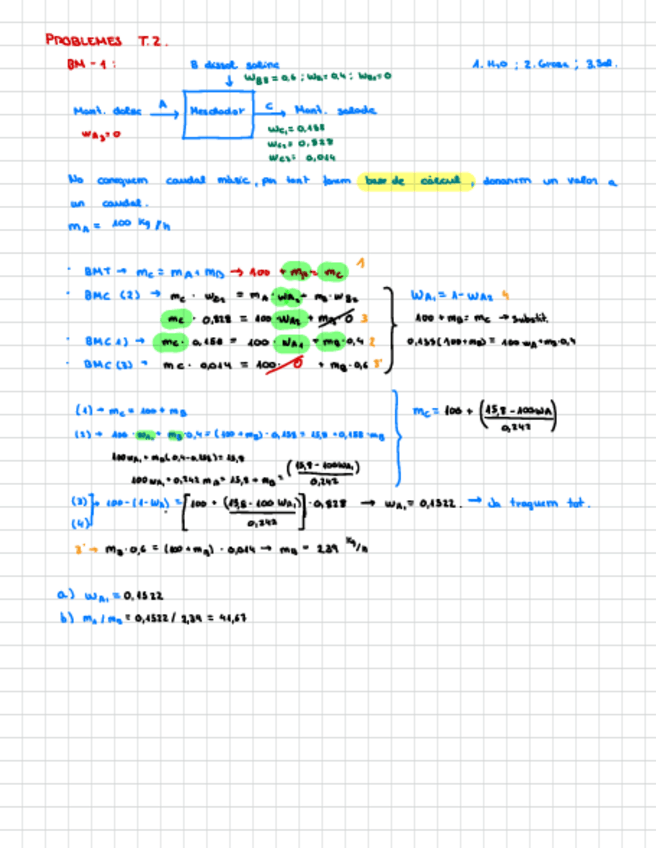 PROBLEMES T.2.
BM-1:
B dissol. salina
1. H₂O ; 2. Grassa ; 3. Sal.
W_B3 = 0,6 ; W_B1 = 0,4 ; W_B2 = 0
Mant. dolça A → Mesclador C → Mant. salada
W_A3 = 0
W_C1 = 0,158
W_C2 = 0,828
W_C3 = 0,014
No coneguem caudal màssic, per tant farem base de càlcul, donarem un valor a
un caudal.
m_A = 100 kg/h
· BMT → m_C = m_A + m_B → 100 + m_B = m_C 1
· BMC (2) → m_C · W_C2 = m_A · W_A2 + m_B · W_B2
m_C · 0,828 = 100 · W_A2 + m_B · 0 3
· BMC (1) → m_C · 0,158 = 100 · W_A1 + m_B · 0,4 2
· BMC (3) → m_C · 0,014 = 100 · 0 + m_B · 0,6 3'
W_A1 = 1 - W_A2 4
100 + m_B = m_C → substit.
0,158 (100 + m_B) = 100 W_A + m_B · 0,4
(1) → m_C = 100 + m_B
(2) → 100 · W_A1 + m_B · 0,4 = (100 + m_B) · 0,158 = 15,8 + 0,158 · m_B
100 W_A1 + m_B (0,4 - 0,158) = 15,8
100 W_A1 + 0,242 m_B = 15,8 → m_B = (15,8 - 100 W_A1) / 0,242
m_C = 100 + (15,8 - 100 W_A / 0,242)
(3) (4) → 100 · (1 - W_A) = [100 + (15,8 - 100 W_A1) / 0,242] · 0,828 → W_A1 = 0,1522. → Ja traguem tot.
3' → m_B · 0,6 = (100 + m_B) · 0,014 → m_B = 2,39 kg/h
a) W_A1 = 0,1522
b) m_A / m_B = 0,1522 / 2,39 = 41,67